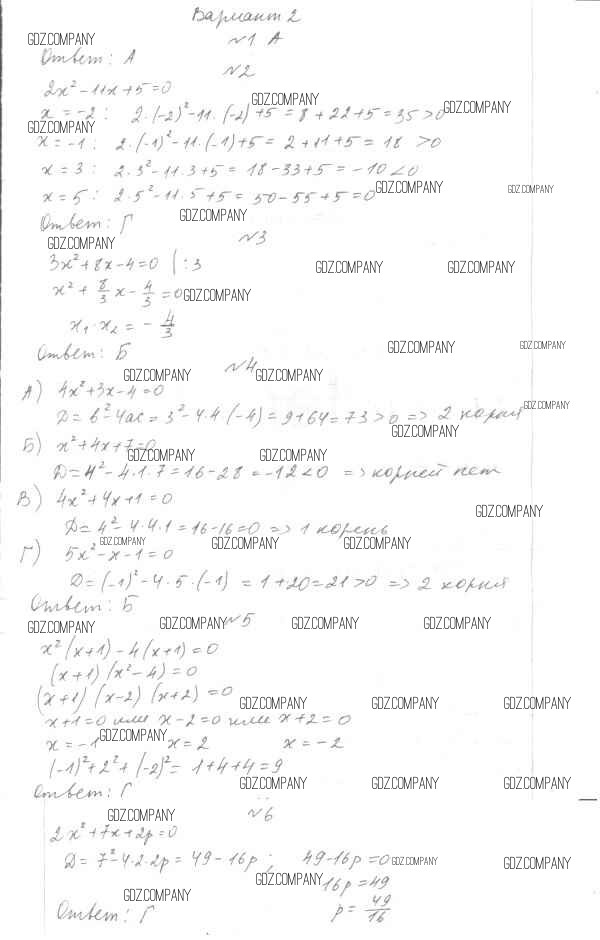 Вариант 2
№1 А
GDZ.COMPANY
Ответ: А
№2
2x² - 11x + 5 = 0
GDZ.COMPANY
x = -2 : 2·(-2)² - 11·(-2) + 5 = 8 + 22 + 5 = 35 > 0
GDZ.COMPANY
GDZ.COMPANY
x = -1 : 2·(-1)² - 11·(-1) + 5 = 2 + 11 + 5 = 18 > 0
x = 3 : 2·3² - 11·3 + 5 = 18 - 33 + 5 = -10 < 0
x = 5 : 2·5² - 11·5 + 5 = 50 - 55 + 5 = 0
GDZ.COMPANY GDZ.COMPANY
GDZ.COMPANY
Ответ: Г
№3
GDZ.COMPANY
3x² + 8x - 4 = 0 | : 3
GDZ.COMPANY GDZ.COMPANY
x² + 8/3 x - 4/3 = 0
GDZ.COMPANY
x₁ · x₂ = - 4/3
Ответ: Б
GDZ.COMPANY GDZ.COMPANY
№4
GDZ.COMPANY GDZ.COMPANY
А) 4x² + 3x - 4 = 0
GDZ.COMPANY
D = b² - 4ac = 3² - 4·4(-4) = 9 + 64 = 73 > 0 => 2 корня
GDZ.COMPANY
Б) x² + 4x + 7 = 0
GDZ.COMPANY GDZ.COMPANY
D = 4² - 4·1·7 = 16 - 28 = -12 < 0 => корней нет
В) 4x² + 4x + 1 = 0
GDZ.COMPANY
D = 4² - 4·4·1 = 16 - 16 = 0 => 1 корень
GDZ.COMPANY GDZ.COMPANY GDZ.COMPANY
Г) 5x² - x - 1 = 0
D = (-1)² - 4·5·(-1) = 1 + 20 = 21 > 0 => 2 корня
Ответ: Б
GDZ.COMPANY GDZ.COMPANY №5 GDZ.COMPANY GDZ.COMPANY
x²(x+1) - 4(x+1) = 0
(x+1)(x²-4) = 0
(x+1)(x-2)(x+2) = 0
GDZ.COMPANY GDZ.COMPANY GDZ.COMPANY
x+1=0 или x-2=0 или x+2=0
GDZ.COMPANY
x = -1 x = 2 x = -2
(-1)² + 2² + (-2)² = 1 + 4 + 4 = 9
GDZ.COMPANY GDZ.COMPANY GDZ.COMPANY
Ответ: Г
GDZ.COMPANY №6
2x² + 7x + 2p = 0
D = 7² - 4·2·2p = 49 - 16p ; 49 - 16p = 0
GDZ.COMPANY GDZ.COMPANY
GDZ.COMPANY 16p = 49
GDZ.COMPANY GDZ.COMPANY
Ответ: Г p = 49/16